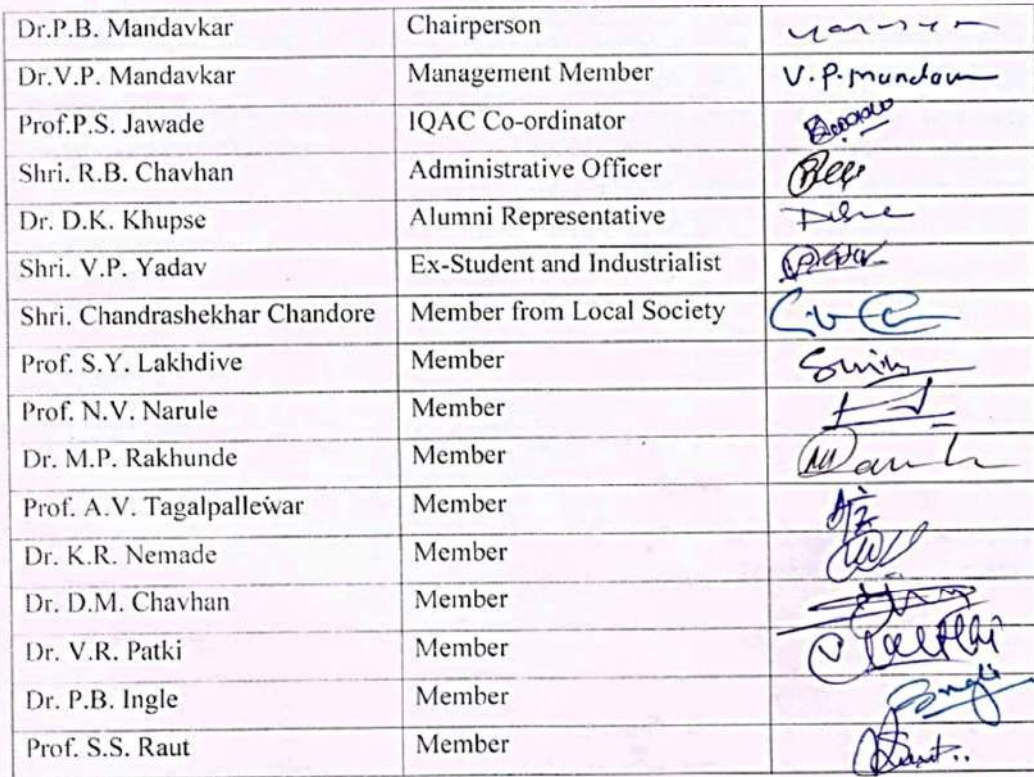 Dr.P.B. Mandavkar Chairperson
Dr.V.P. Mandavkar Management Member V.P.Mandavkar
Prof.P.S. Jawade IQAC Co-ordinator
Shri. R.B. Chavhan Administrative Officer
Dr. D.K. Khupse Alumni Representative
Shri. V.P. Yadav Ex-Student and Industrialist
Shri. Chandrashekhar Chandore Member from Local Society
Prof. S.Y. Lakhdive Member
Prof. N.V. Narule Member
Dr. M.P. Rakhunde Member
Prof. A.V. Tagalpallewar Member
Dr. K.R. Nemade Member
Dr. D.M. Chavhan Member
Dr. V.R. Patki Member
Dr. P.B. Ingle Member
Prof. S.S. Raut Member